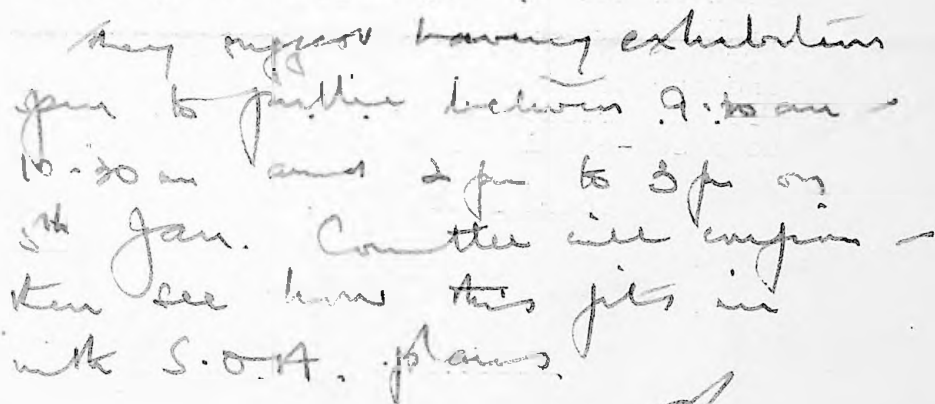 They suggest having exhibition
open to public between 9.30 am -
10.30 am and 2 pm to 3 pm on
5th Jan. Committee will confirm -
then see how this fits in
with S.O.A. plans.